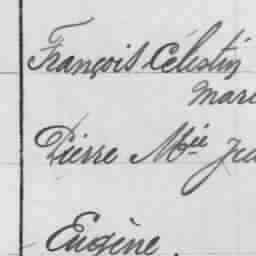 François Célestin
Pierre M^ie
Eugène